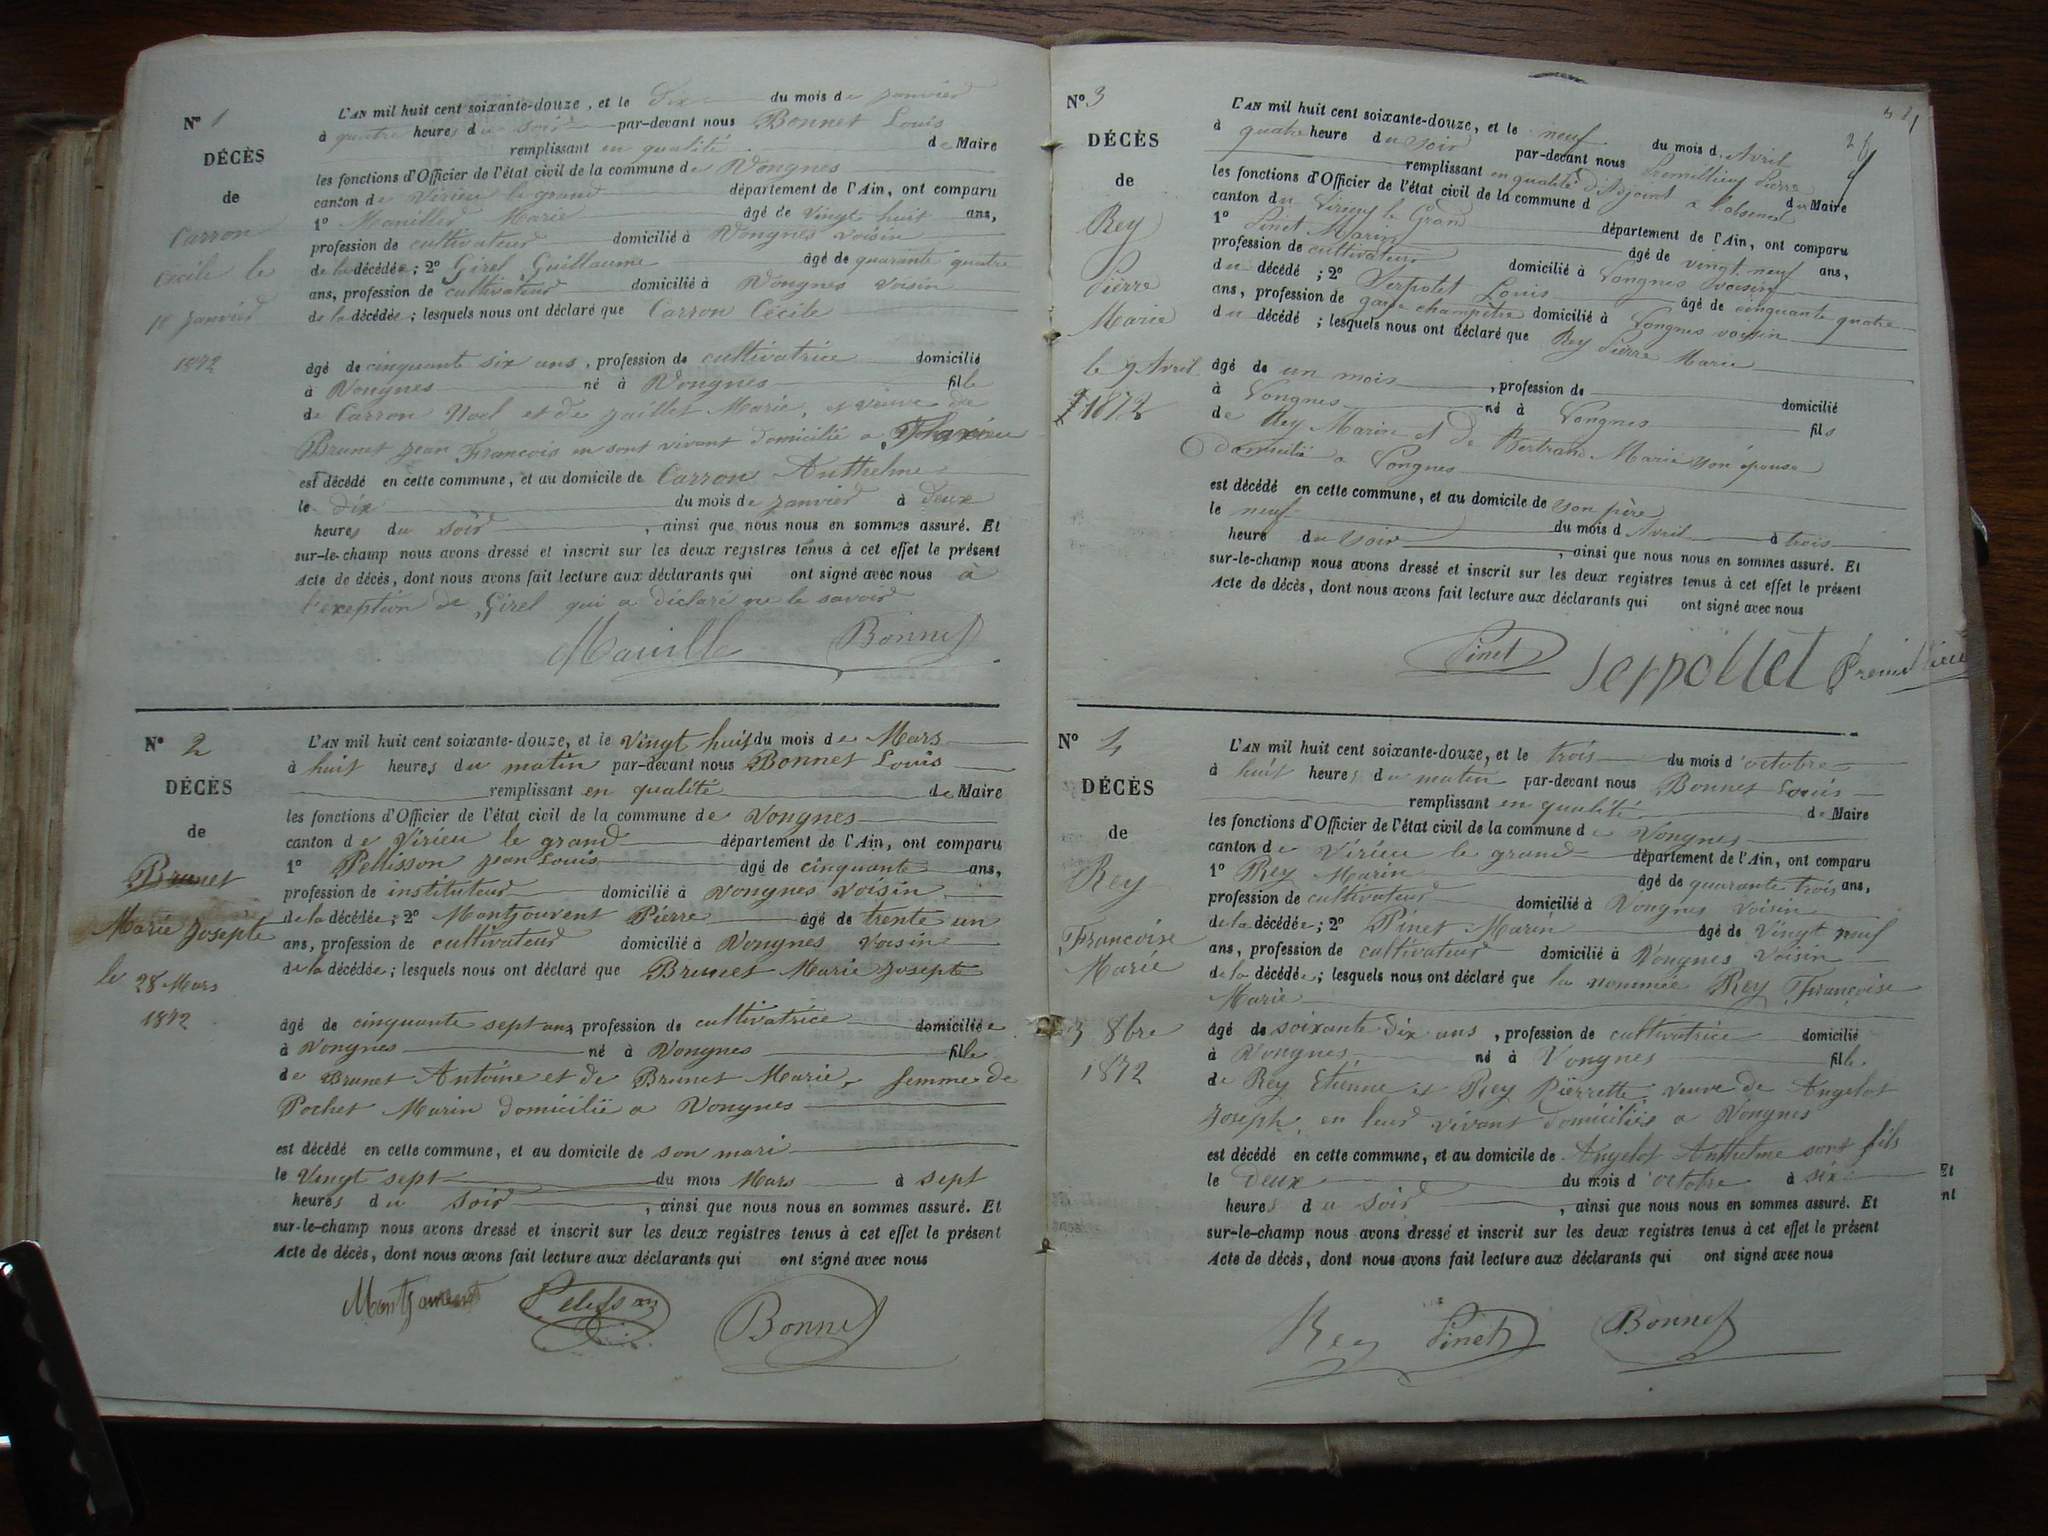 N° 1
DÉCÈS
de
Carron
Cécile le
10 janvier
1872
L'AN mil huit cent soixante-douze, et le Dix du mois de janvier
à quatre heures du soir par-devant nous Bonnet Louis
remplissant en qualité de Maire
les fonctions d'Officier de l'état civil de la commune de Vongnes
canton de Virieu le grand département de l'Ain, ont comparu
1° Marie âgé de vingt huit ans,
profession de cultivateur domicilié à Vongnes voisin
de la décédée; 2° Girel Guillaume âgé de quarante quatre
ans, profession de cultivateur domicilié à Vongnes voisin
de la décédée; lesquels nous ont déclaré que Carron Cécile
âgé de cinquante six ans, profession de cultivatrice domicilié
à Vongnes né à Vongnes fille
de Carron Noel et de jaillet Marie, et veuve de
Brunet jean François en sont vivant domicilié a
est décédé en cette commune, et au domicile de Carron Anthelme
le dix du mois de janvier à deux
heures du soir, ainsi que nous nous en sommes assuré. Et
sur-le-champ nous avons dressé et inscrit sur les deux registres tenus à cet effet le présent
Acte de décès, dont nous avons fait lecture aux déclarants qui ont signé avec nous à
l'exeption de Girel qui a déclaré ne le savoir
Bonnet
N° 2
DÉCÈS
de
Brunet
Marie Josepte
le 28 Mars
1872
L'AN mil huit cent soixante-douze, et le vingt huit du mois de Mars
à huit heures du matin par-devant nous Bonnet Louis
remplissant en qualité de Maire
les fonctions d'Officier de l'état civil de la commune de Vongnes
canton de Virieu le grand département de l'Ain, ont comparu
1° Pellisson jean Louis âgé de cinquante ans,
profession de instituteur domicilié à Vongnes voisin
de la décédée; 2° Montjouvent Pierre âgé de trente un
ans, profession de cultivateur domicilié à Vongnes voisin
de la décédée; lesquels nous ont déclaré que Brunet Marie Josepte
âgé de cinquante sept ans, profession de cultivatrice domiciliée
à Vongnes né à Vongnes fille
de Brunet Antoine et de Brunet Marie, femme de
Pochet Marin domicilié a Vongnes
est décédé en cette commune, et au domicile de son mari
le Vingt sept du mois Mars à sept
heures du soir, ainsi que nous nous en sommes assuré. Et
sur-le-champ nous avons dressé et inscrit sur les deux registres tenus à cet effet le présent
Acte de décès, dont nous avons fait lecture aux déclarants qui ont signé avec nous
Montjouvent Pelisson Bonnet
N° 3
DÉCÈS
de
Rey
Pierre
Marie
le 9 Avril
1872
L'AN mil huit cent soixante-douze, et le neuf du mois d'Avril
à quatre heure du soir par-devant nous Premillieu Pierre
remplissant en qualité d'Adjoint a l'absence du Maire
les fonctions d'Officier de l'état civil de la commune d
canton du Virieu le Grand département de l'Ain, ont comparu
1° Pinet Marin âgé de vingt neuf ans,
profession de cultivateur domicilié à Vongnes voisin
du décédé; 2° Serpolet Louis âgé de cinquante quatre
ans, profession de garde champêtre domicilié à Vongnes voisin
du décédé; lesquels nous ont déclaré que Rey Pierre Marie
âgé de un mois, profession de domicilié
à Vongnes né à Vongnes fils
de Rey Marin et de Bertrand Marie son épouse
domicilié a Vongnes
est décédé en cette commune, et au domicile de son père
le neuf du mois d Avril à trois
heure du soir, ainsi que nous nous en sommes assuré. Et
sur-le-champ nous avons dressé et inscrit sur les deux registres tenus à cet effet le présent
Acte de décès, dont nous avons fait lecture aux déclarants qui ont signé avec nous
Pinet Serpollet Premillieu
N° 4
DÉCÈS
de
Rey
Françoise
Marie
3 8bre
1872
L'AN mil huit cent soixante-douze, et le trois du mois d'octobre
à huit heures du matin par-devant nous Bonnet Louis
remplissant en qualité de Maire
les fonctions d'Officier de l'état civil de la commune de Vongnes
canton de Virieu le grand département de l'Ain, ont comparu
1° Rey Marin âgé de quarante trois ans,
profession de cultivateur domicilié à Vongnes voisin
de la décédée; 2° Pinet Marin âgé de vingt neuf
ans, profession de cultivateur domicilié à Vongnes voisin
de la décédée; lesquels nous ont déclaré que la nommée Rey Françoise
Marie
âgé de soixante dix ans, profession de cultivatrice domicilié
à Vongnes, né à Vongnes fille
de Rey Etienne et Rey Pierrette, veuve de Angelot
Joseph, en leur vivant domiciliés a Vongnes
est décédé en cette commune, et au domicile de Angelot Anthelme sont fils
le Deux du mois d'octobre à six
heures du soir, ainsi que nous nous en sommes assuré. Et
sur-le-champ nous avons dressé et inscrit sur les deux registres tenus à cet effet le présent
Acte de décès, dont nous avons fait lecture aux déclarants qui ont signé avec nous
Rey Pinet Bonnet